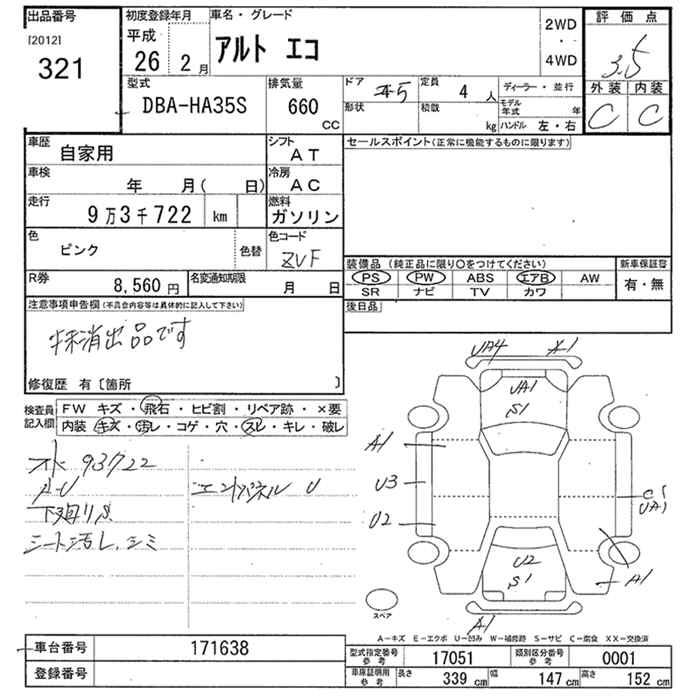 出品番号
[2012]
321
初度登録年月
平成
26 2月
車名・グレード
アルト エコ
2WD
・
4WD
評価点
3.5
外装 内装
C C
型式
DBA-HA35S
排気量
660
CC
ドア
5
形状
定員
4 人
積載
kg
ディーラー・並行
モデル年式 年
ハンドル 左・右
車歴
自家用
シフト
AT
車検
年 月( 日)
冷房
AC
走行
9万3千722 km
燃料
ガソリン
色
ピンク
色替
色コード
ZVF
R券
8,560円
名変通知期限
月 日
セールスポイント(正常に機能するものに限ります)
装備品 (純正品に限り○をつけてください)
PS PW ABS エアB AW
SR ナビ TV カワ
新車保証書
有・無
後日品
注意事項申告欄(不具合内容等は具体的に記入して下さい)
抹消出品です
修復歴 有〔箇所 〕
検査員
記入欄
FW キズ・飛石・ヒビ割・リペア跡・×要
内装・キズ・汚レ・コゲ・穴・スレ・キレ・破レ
93722
A・U
下廻りS
シート汚レ、シミ
エンドパネル U
UA4 X1
UA1
S1
A1
U3
U2
C1
UA1
U2
S1
A1
A1
スペア
A−キズ E−エクボ U−凹み W−補修跡 S−サビ C−腐食 XX−交換済
車台番号
171638
登録番号
型式指定番号
参考
17051
類別区分番号
参考
0001
車庫証明用
参考
長さ 339 cm 幅 147 cm 高さ 152 cm